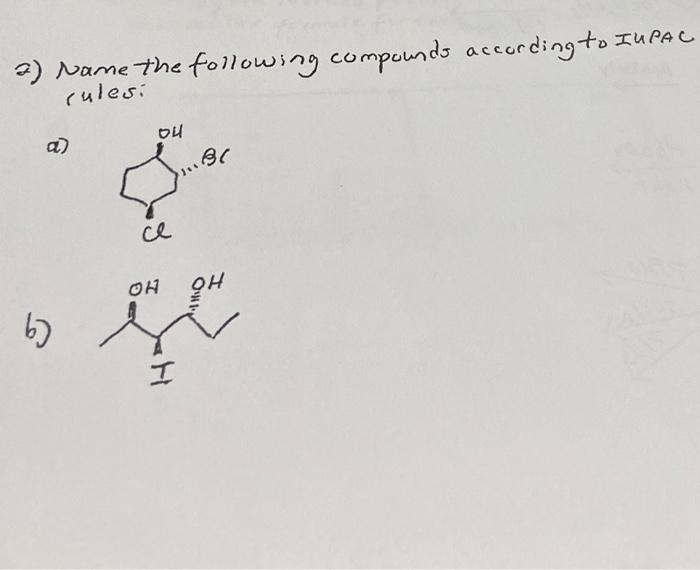 2) Name the following compounds according to IUPAC
rules:
a)
OH
Br
Cl
OH OH
b)
I